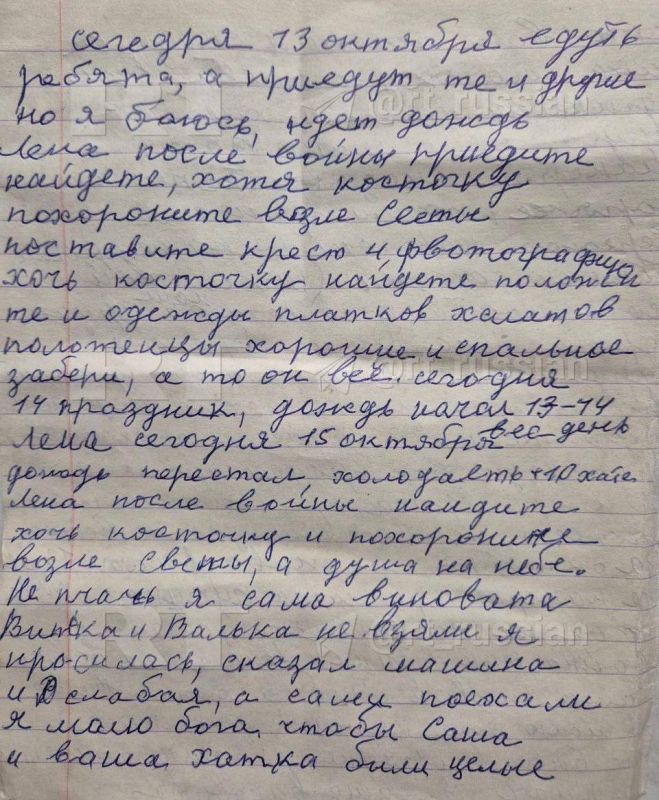 сегедня 13 октября едуть
ребята, а приедут те и другие
но я боюсь, идет дождь
Лена после войны приедите
найдете, хотя косточку
похороните возле Светы
поставите крест и фвотографию
хочь косточку найдете положи
те и одежды платков халатов
полотенцы хорошие и спальное
забери, а то он все. сегодня
14 праздник, дождь начал 13-14
Лена сегодня 15 октября вес день
дождь перестал, холодаеть +10 хате
Лена после войны найдите
хочь косточку и похороните
возле Светы, а душа на небе.
Не плачь я сама виновата
Витька и Валька не взяли я
просилась, сказал машина
и слабая, а сами поехали
я молю бога чтобы Саша
и ваша хатка были целые
RT
@rt_russian
RT
@rt_russian
RT
@rt_russian